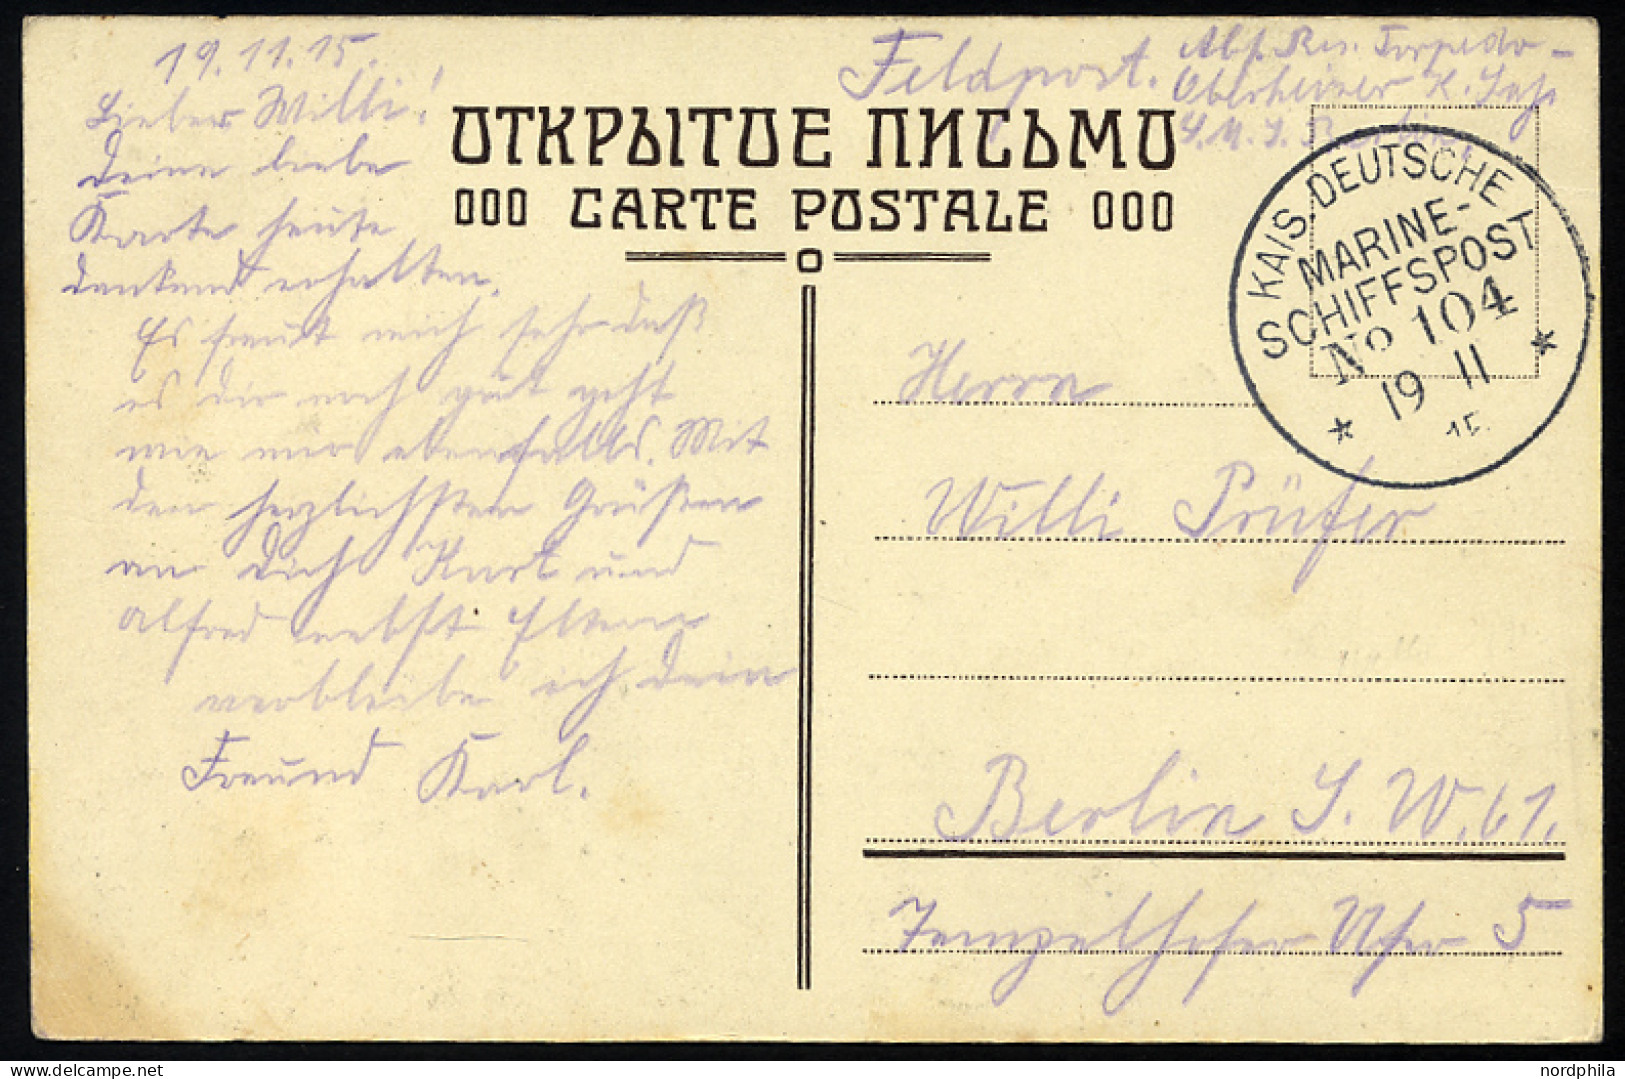 19.11.15.
Lieber Willi!
Deine liebe
Karte heute
dankend erhalten.
Es freut mich sehr daß
es dir noch gut geht
wie mir ebenfalls. Mit
den herzlichsten Grüßen
an Dich Kurt und
Alfred nebst Eltern
verbleibe ich dein
Freund Karl.
Feldpost. Abs. Res. Torpedo-
Oberheizer K.
S.M.S.
ОТКРЫТОЕ ПИСЬМО
CARTE POSTALE
KAIS. DEUTSCHE
MARINE-
SCHIFFSPOST
No 104
19 11
15.
Herrn
Willi Prüfer
Berlin S.W.61.
Tempelhofer Ufer 5
www.delcampe.net
nordphila